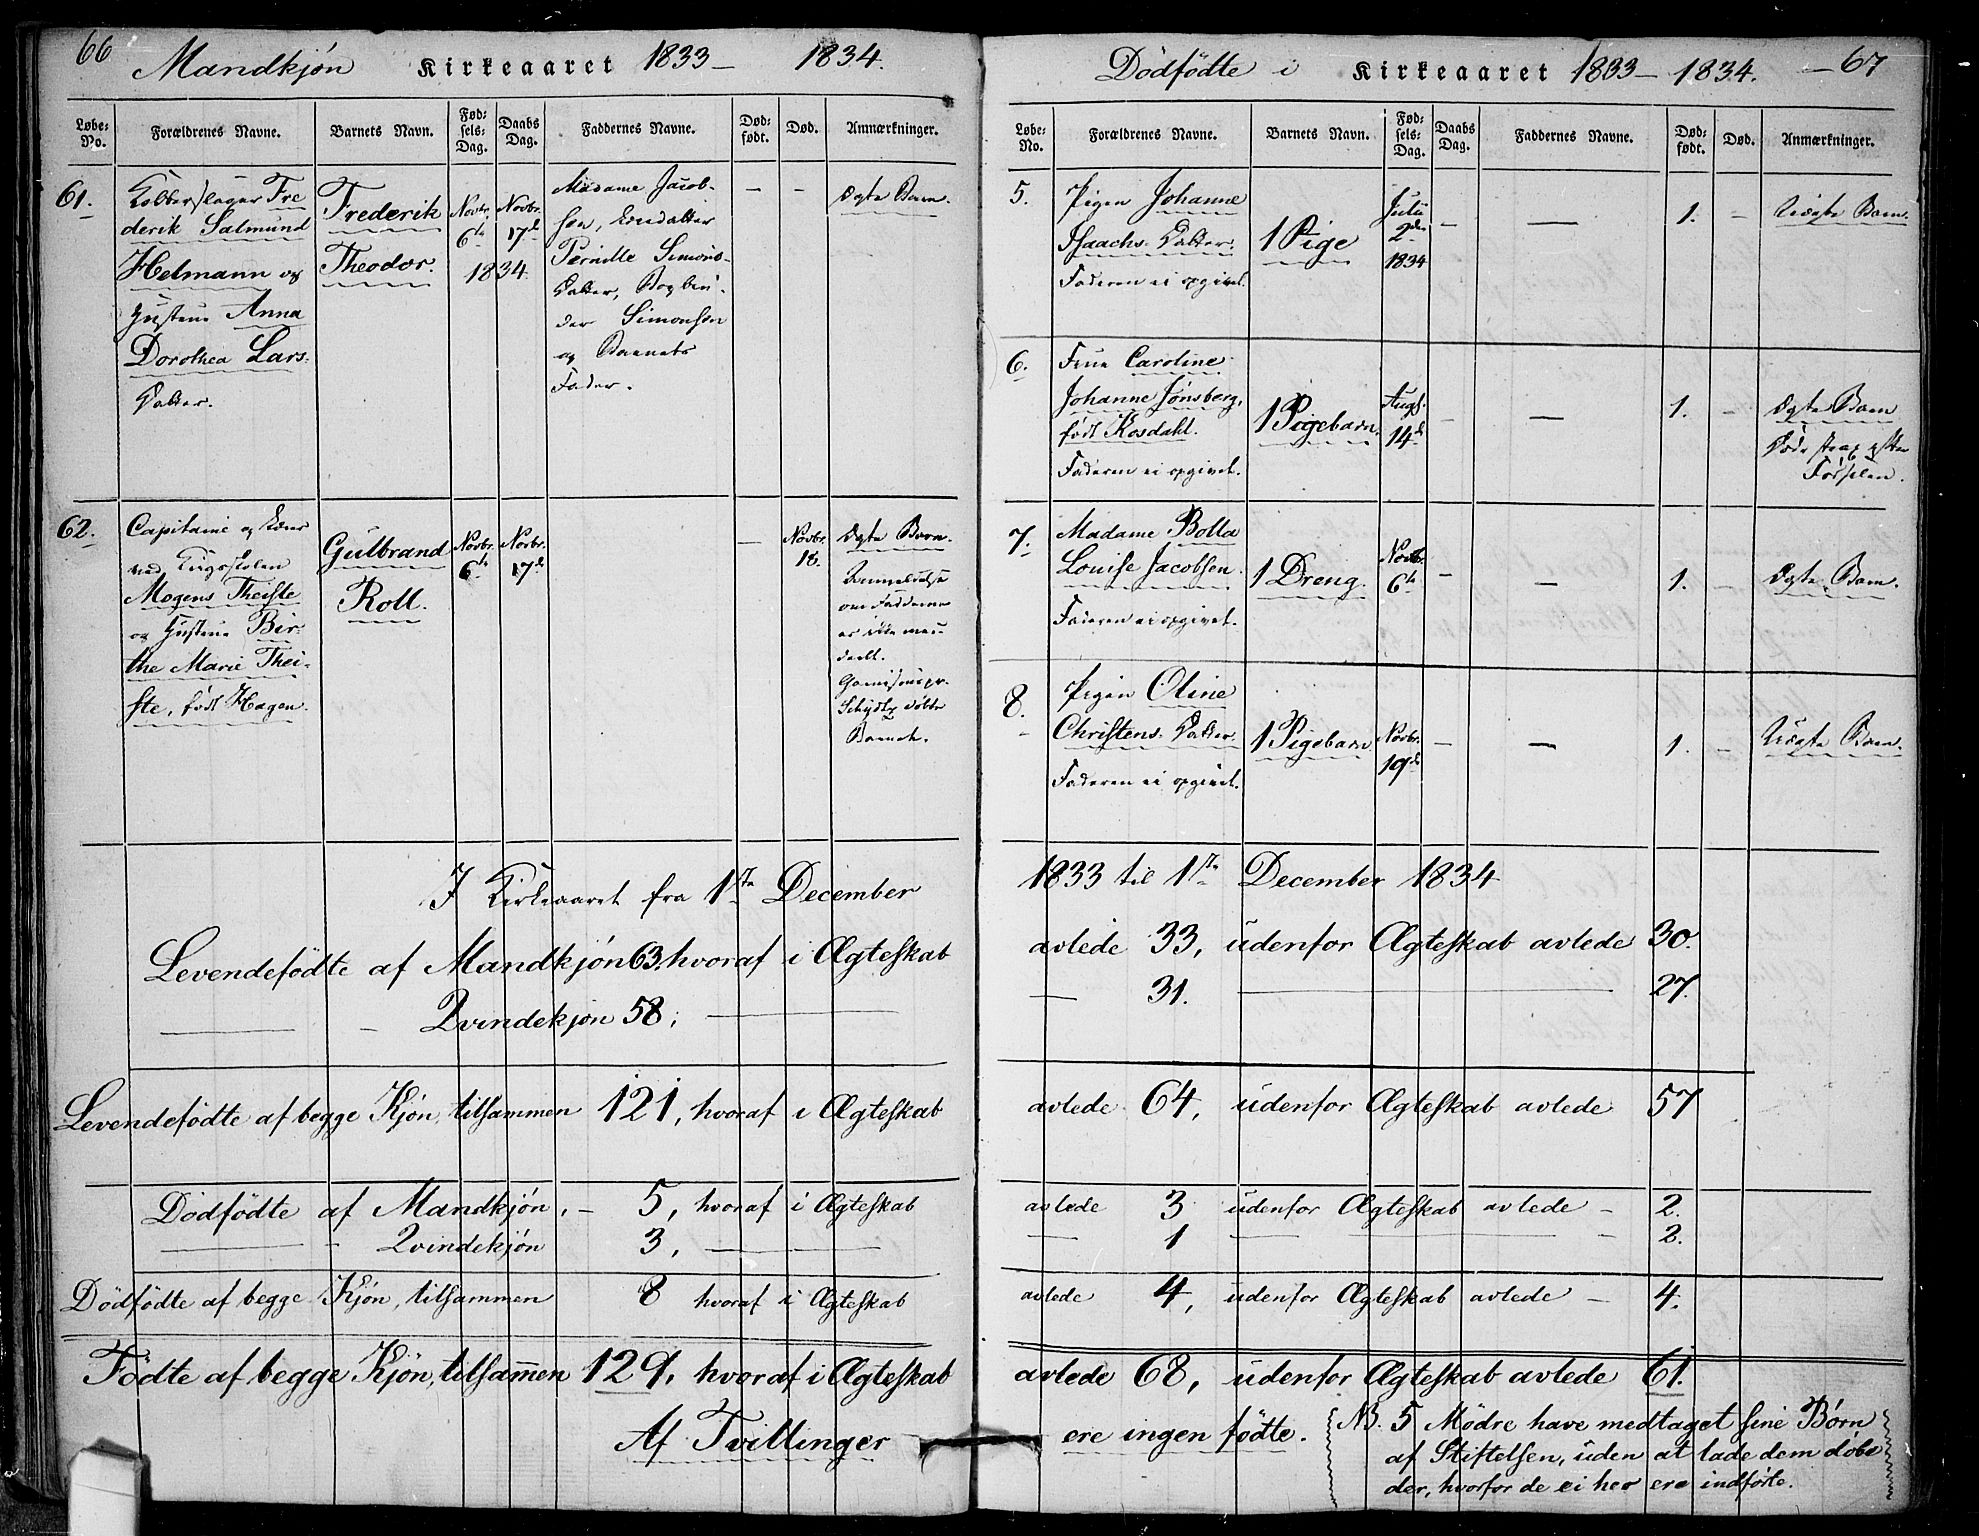 66 Mandkjøn Kirkeaaret 1833 — 1834.
Løbe-No. Forældrenes Navne. Barnets Navn. Fødsels-Dag. Daabs Dag. Faddernes Navne. Død-født. Død. Anmærkninger.
61. Kobberslager Fre
derik Salmund
Helmann og
Hustrue Anna
Dorothea Lars-
Datter.
Frederik
Theodor.
Novbr. 6te
Novbr. 17de
1834.
Madame Jacob-
sen,
Pernille Simons-
Datter, Bogbin-
der Simonsen
og Barnets
Fader.
— —
Ægte Barn.
62. Capitaine og
ved Krigsskolen
Mogens Theiste
og Hustrue Bir-
the Marie Thei-
ste, født Hagen.
Gulbrand
Roll.
Novbr. 6te
Novbr. 17de
—
Novbr. 18.
Ægte Barn.
Anmeldelse
om Fadderne
er ikke med-
deelt.
Garnisonspr.
Schydtz døbte
Barnet.
I Kirkeaaret fra 1ste December
Levendefödte af Mandkjøn 63, hvoraf i Ægteskab
— — Qvindekjøn 58, —
Levendefödte af begge Kjøn, tilsammen 121, hvoraf i Ægteskab
Dödfödte af Mandkjøn, — 5, hvoraf i Ægteskab
— — Qvindekjøn 3, —
Dödfödte af begge Kjøn, tilsammen 8 hvoraf i Ægteskab
Födte af begge Kjøn, tilsammen 129, hvoraf i Ægteskab
Af Tvillinger
Dödfödte i Kirkeaaret 1833 — 1834. — 67
Løbe-No. Forældrenes Navne. Barnets Navn. Fødsels-Dag. Daabs Dag. Faddernes Navne. Død-født. Død. Anmærkninger.
5. Pigen Johanne
Isaachs-Datter.
Faderen ei opgivet.
1 Pige
Julii
2den
1834
— — 1. —
Uægte Barn.
6. Frue Caroline
Johanne Jønsberg,
født Rosdahl.
Faderen ei opgivet.
1 Pigebarn.
Augst.
14de
— — 1. —
Ægte Barn
Døde strax efter
Fødselen.
7. Madame Bolla
Louise Jacobsen.
Faderen ei opgivet.
1 Dreng.
Novbr.
6te
— — 1. —
Ægte Barn.
8. Pigen Oline
Christens-Datter.
Faderen ei opgivet.
1 Pigebarn
Novbr.
19de
— — 1. —
Uægte Barn.
1833 til 1ste December 1834
avlede 33, udenfor Ægteskab avlede 30.
— 31. — 27.
avlede 64, udenfor Ægteskab avlede 57
avlede 3 udenfor Ægteskab avlede — 2.
— 1 — — 2.
avlede 4, udenfor Ægteskab avlede — 4.
avlede 68, udenfor Ægteskab avlede 61.
ere ingen födte.
NB. 5 Mödre have medtaget sine Børn
af Stiftelsen, uden at lade dem døbe
der, hvorfor de ei her ere indførte.